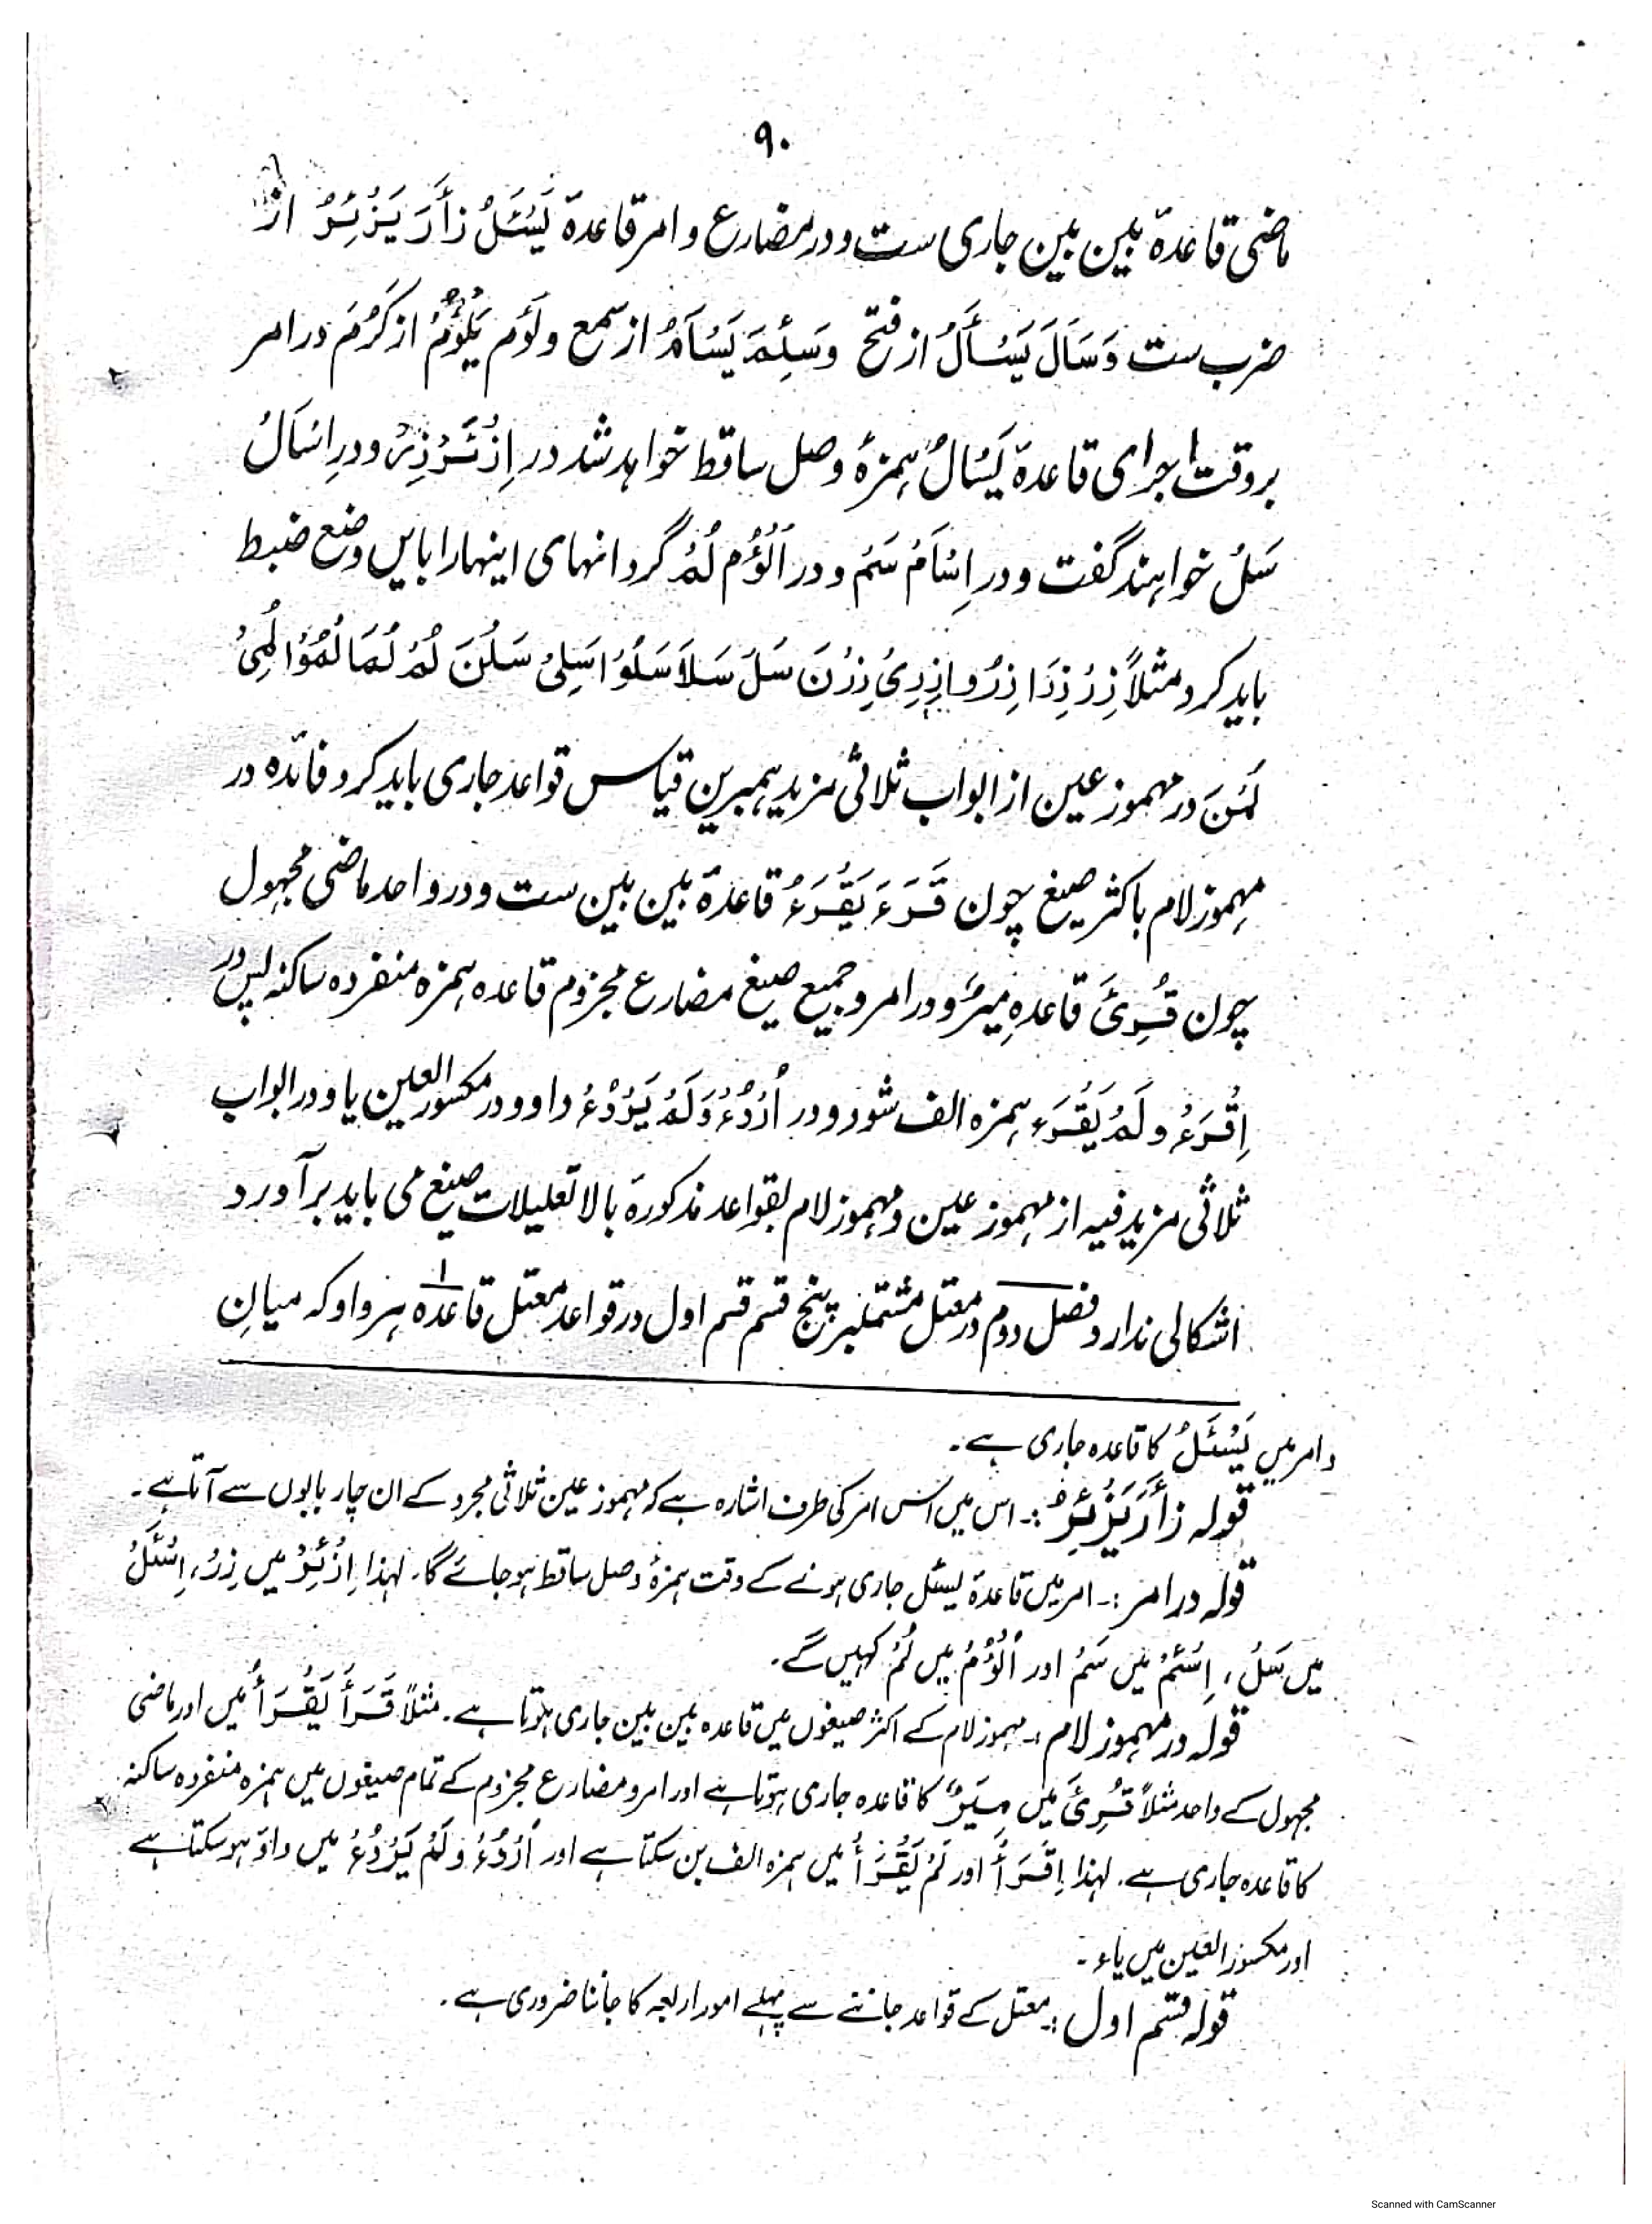 ۹۰
ماضی قاعدۂ بین بین جاری ست و در مضارع و امر قاعدۂ یَسْئَلُ زَأَرَ یَزْئِرُ از
ضرب ست وَسَأَلَ یَسْأَلُ از فتح وَسَئِمَ یَسْأَمُ از سمع و لَؤُم یَلْؤُمُ از کَرُمَ در امر
بروقت اجرای قاعدۂ یَسَالُ ہمزۂ وصل ساقط خواہد شد در اِزْئَرْ زِرْ و در اِسْأَلْ
سَلْ خواہند گفت و در اِسْأَمْ سَمْ و در اُلْؤُم لُمْ گردانہای اینہا را باین وضع ضبط
باید کرد مثلاً زِرْ زِرَا زِرُوا زِرِیْ زِرْنَ سَلْ سَلَا سَلُوْا سَلِیْ سَلْنَ لُمْ لُمَا لُمُوْا لُمِیْ
لُمْنَ در مہموز عین از ابواب ثلاثی مزید ہمبرین قیاس قواعد جاری باید کرد فائدہ در
مہموز لام باکثر صیغ چون قَرَءَ یَقْرَءُ قاعدۂ بین بین ست و در واحد ماضی مجہول
چون قُرِئَ قاعدہِ مِیَرٌ و در امر و جمیع صیغ مضارع مجزوم قاعدہ ہمزہ منفردہ ساکنہ پس در
اِقْرَءْ و لَمْ یَقْرَء ہمزہ الف شود و در اُرْدُءْ وَلَمْ یَرْدُءْ واو و در مکسور العین یا و در ابواب
ثلاثی مزید فیہ از مہموز عین و مہموز لام بقواعد مذکورۂ بالا تعلیلات صیغ می باید برآورد
اشکالی ندارد فصل دوم در معتل مشتملبر پنج قسم قسم اول در قواعد معتل قاعدہ ۱ ہر واو کہ میانِ
و امر میں یَسْئَلُ کا قاعدہ جاری ہے۔
قولہ زَأَرَ یَزْئِرُ :۔ اس میں اس امر کی طرف اشارہ ہے کہ مہموز عین ثلاثی مجرد کے ان چار بابوں سے آتا ہے۔
قولہ در امر :۔ امر میں قاعدۂ یسئل جاری ہونے کے وقت ہمزۂ وصل ساقط ہو جائے گا۔ لہٰذا اِزْئِرْ میں زِرْ، اِسْئَلْ
میں سَلْ ، اِسْئَمْ میں سَمْ اور اُلْؤُمْ میں لُمْ کہیں گے۔
قولہ در مہموز لام :۔ مہموز لام کے اکثر صیغوں میں قاعدہ بین بین جاری ہوتا ہے۔ مثلاً قَرَأَ یَقْرَأُ میں اور ماضی
مجہول کے واحد مثلاً قُرِئَ میں مِیَرٌ کا قاعدہ جاری ہوتا ہے اور امر و مضارع مجزوم کے تمام صیغوں میں ہمزہ منفردہ ساکنہ
کا قاعدہ جاری ہے۔ لہٰذا اِقْرَأْ اور لَمْ یَقْرَأْ میں ہمزہ الف بن سکتا ہے اور اُرْدُءْ وَ لَمْ یَرْدُءْ میں واؤ ہو سکتا ہے
اور مکسور العین میں یاء۔
قولہ قسم اول :۔ معتل کے قواعد جاننے سے پہلے امور اربعہ کا جاننا ضروری ہے۔
Scanned with CamScanner